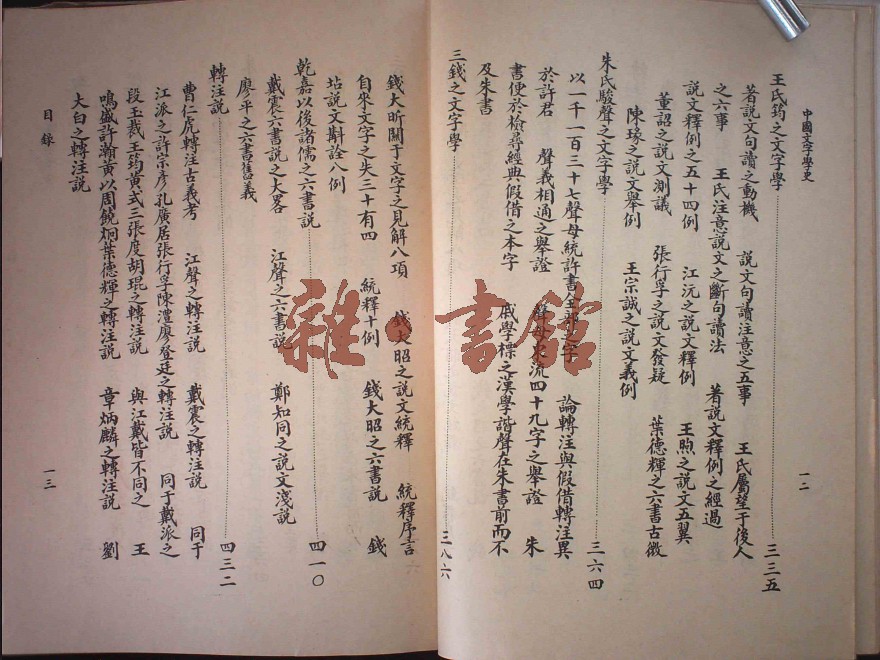 中國文字學史
一二
王氏筠之文字學 三三五
著說文句讀之動機 說文句讀注意之五事 王氏屬望于後人
之六事 王氏注意說文之斷句讀法 著說文釋例之經過
說文釋例之五十四例 江沅之說文釋例 王煦之說文五翼
董詔之說文測議 張行孚之說文發疑 葉德輝之六書古微
陳瑑之說文舉例 王宗誠之說文義例
朱氏駿聲之文字學 三六四
以一千一百三十七聲母統許書全部之字 論轉注與假借轉注異
於許君 聲義相通之舉證 聲母交流四十九字之舉證 朱
書便於檢尋經典假借之本字 戚學標之漢學諧聲在朱書前而不
及朱書
三錢之文字學 三八六
錢大昕關于文字之見解八項 錢大昭之說文統釋 統釋序言
自來文字之失三十有四 統釋十例 錢大昭之六書說 錢
坫說文斠詮八例
乾嘉以後諸儒之六書說 四一〇
戴震六書說之大畧 江聲之六書說 鄭知同之說文淺說
廖平之六書舊義
轉注說 四三二
曹仁虎轉注古義考 江聲之轉注說 戴震之轉注說 同于
江派之許宗彥孔廣居張行孚陳澧廖登廷之轉注說 同于戴派之
段玉裁王筠黃式三張度胡琨之轉注說 與江戴皆不同之 王
鳴盛許瀚黃以周饒炯葉德輝之轉注說 章炳麟之轉注說 劉
大白之轉注說
目錄
一三
雜·書館